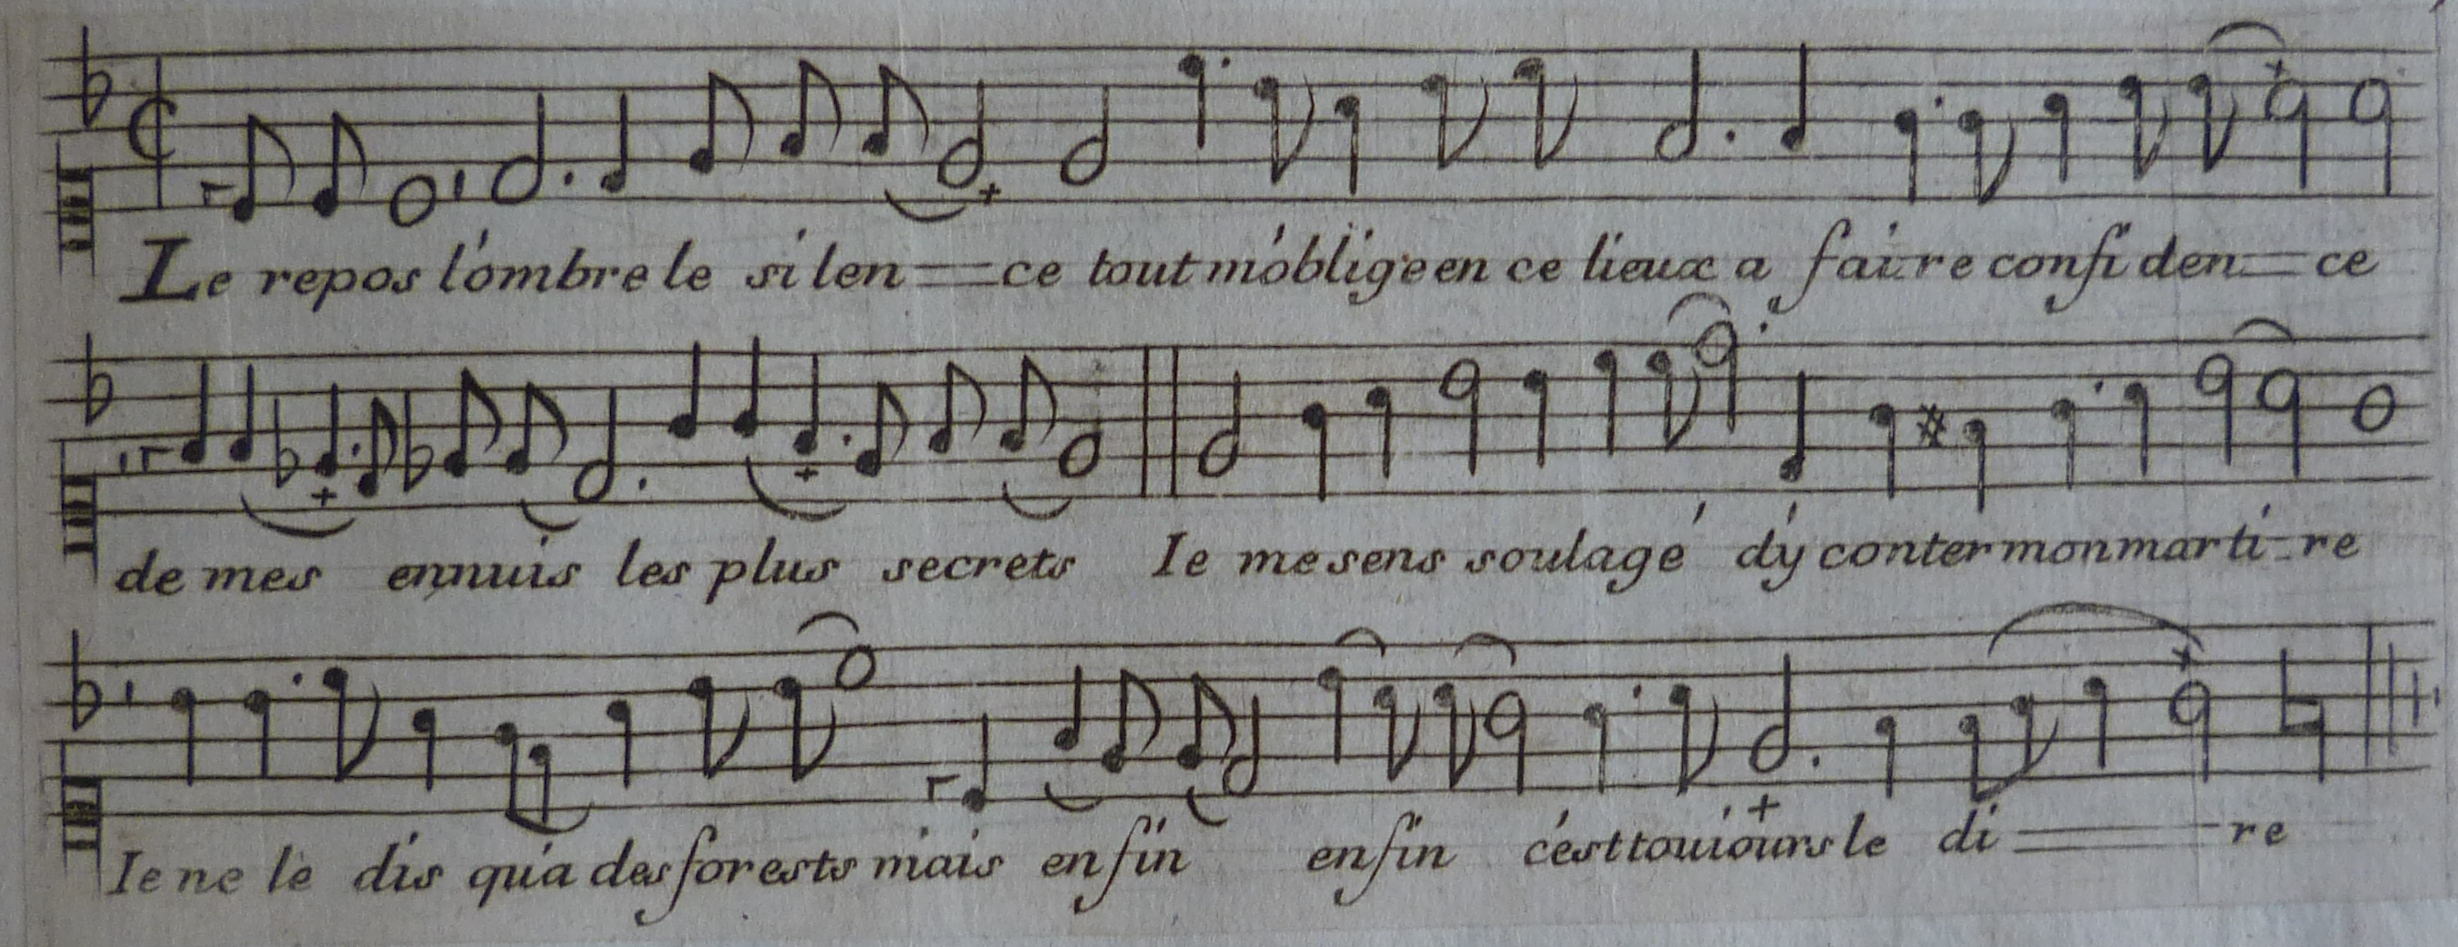 Le repos l'ombre le silen=ce tout m'oblige en ce lieux a faire confiden=ce
de mes ennuis les plus secrets Ie me sens soulagé d'y conter mon marti-re
Ie ne le dis qu'a des forests mais enfin enfin c'est touiours le di=re